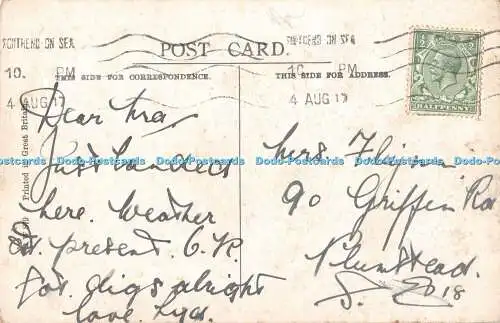 SOUTHEND ON SEA
10. PM
4 AUG 17
SOUTHEND ON SEA
10 PM
4 AUG 17
POST CARD.
THIS SIDE FOR CORRESPONDENCE.
THIS SIDE FOR ADDRESS.
HALFPENNY
Printed in Great Britain
Dear
Just landed
here. Weather
at present. O.K
Got digs alright
love
Mrs
90 Griffin Rd
Plumstead.
S.E 18
Dodo-Postcards Dodo-Postcards Dodo-Postcards Dodo-Postcards Dodo-Postcards